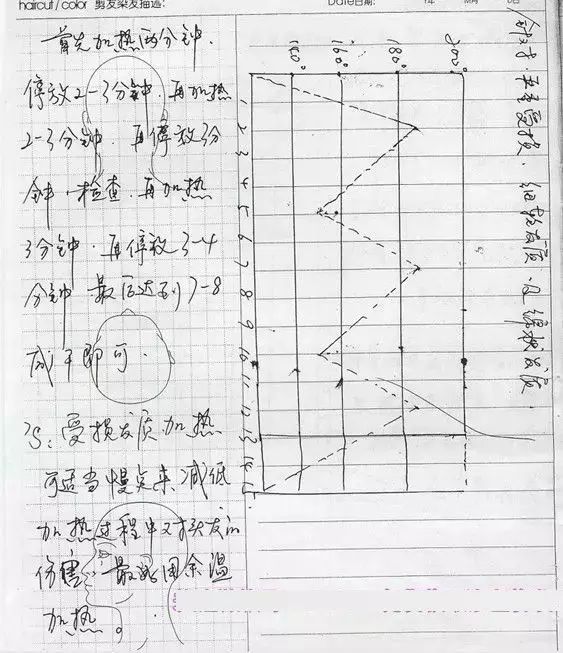 haircut / color 剪发染发描述:
Date日期:
首先加热两分钟.
停放2-3分钟.再加热
2-3分钟.再停放3分
钟.检查.再加热
3分钟.再停放3-4
分钟 最后达到7-8
成干即可.
PS:受损发质.加热
可适当慢点来.减低
加热过程中对头发的
伤害.最好用余温
加热。
140° 160° 180° 200°
1
2
3
4
5
6
7
8
9
10
11
12
13
14
15
针对.严重受损.细软发质.及绵状发质